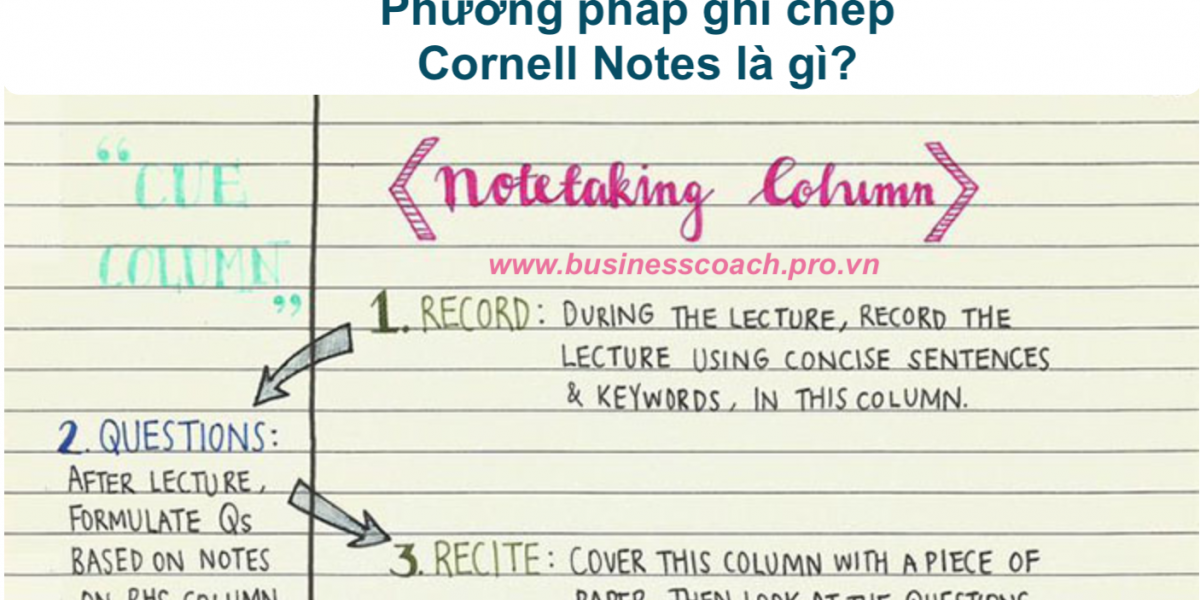 Phương pháp ghi chép
Cornell Notes là gì?
“CUE
COLUMN”
Notetaking Column
www.businesscoach.pro.vn
1. RECORD: DURING THE LECTURE, RECORD THE
LECTURE USING CONCISE SENTENCES
& KEYWORDS, IN THIS COLUMN.
2. QUESTIONS:
AFTER LECTURE,
FORMULATE Qs
BASED ON NOTES
ON RHS COLUMN
3. RECITE: COVER THIS COLUMN WITH A PIECE OF
PAPER, THEN LOOK AT THE QUESTIONS